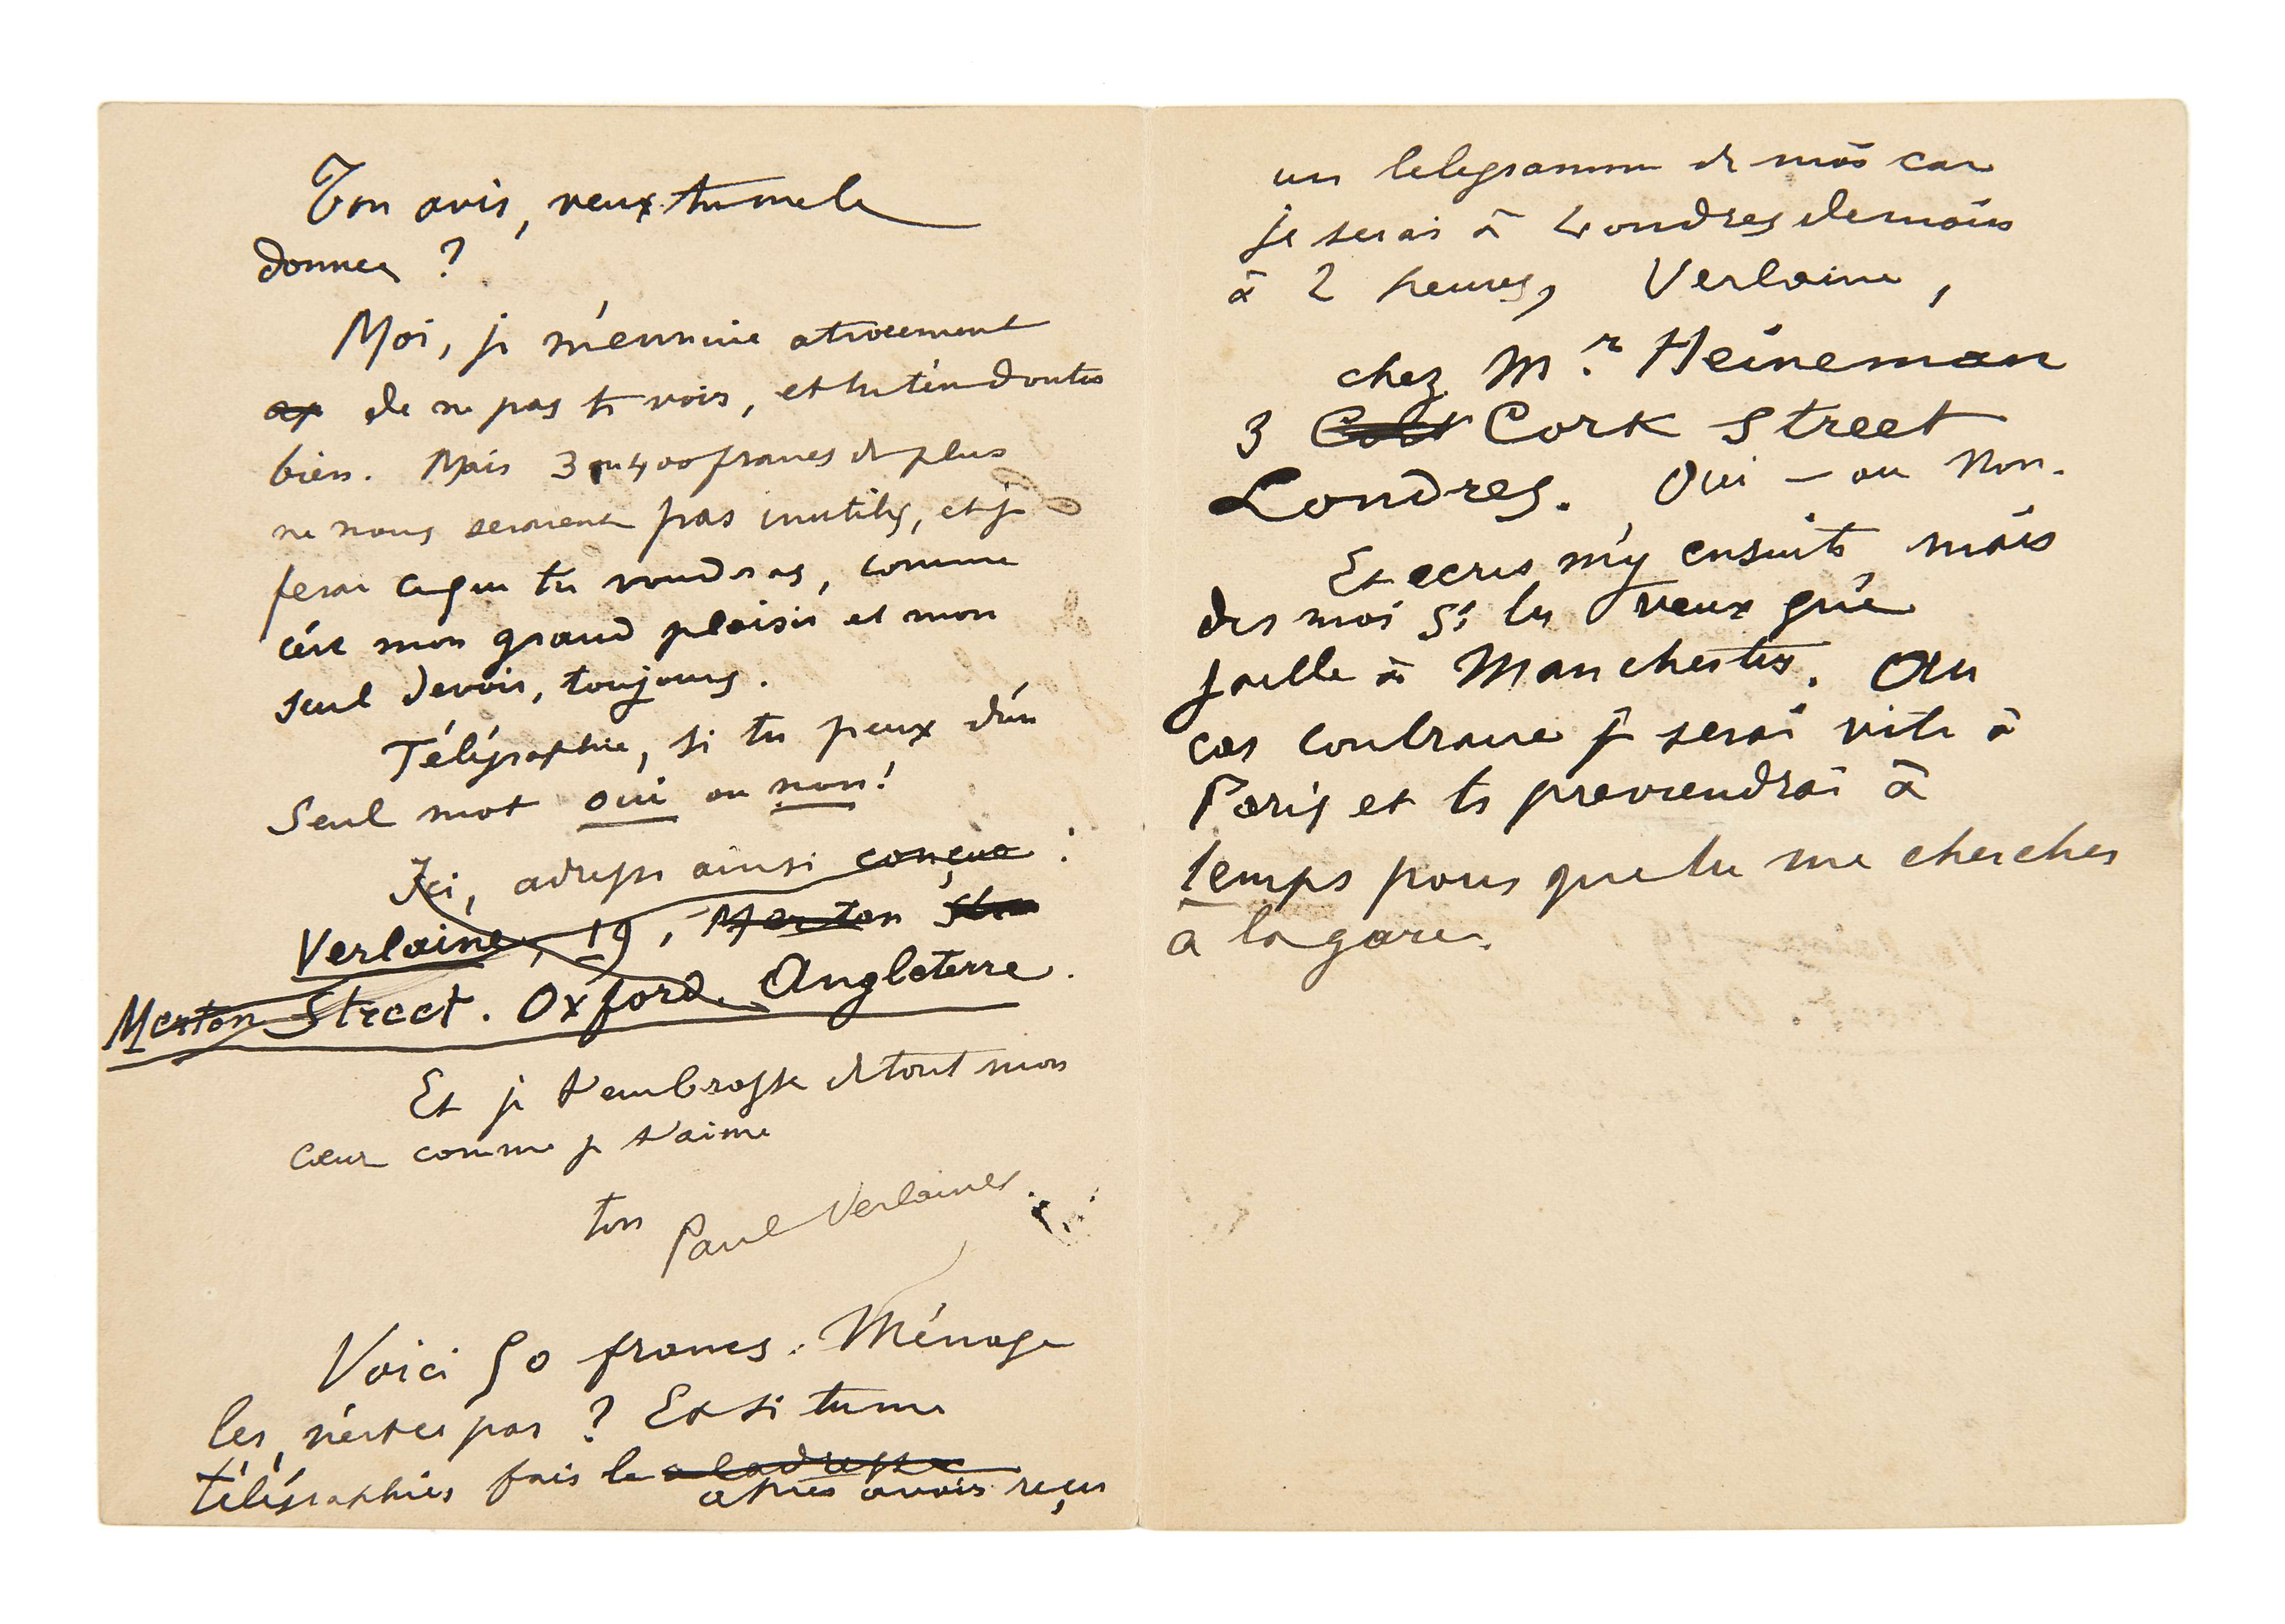 Ton avis, veux tu me le
donner ?
Moi, je m'ennuie atrocement
de ne pas te voir, et tu t'en doutes
bien. Mais 3 ou 400 francs de plus
ne nous seraient pas inutiles, et je
ferai ce que tu voudras, comme
c'est mon grand plaisir et mon
seul devoir, toujours.
Télégraphie, si tu peux d'un
Seul mot oui ou non !
Ici, adresse ainsi conçue :
Verlaine, 19, Merton Stre
Merton Street. Oxford. Angleterre.
Et je t'embrasse de tout mon
cœur comme je t'aime
ton Paul Verlaine.
Voici 50 francs. Ménage
les, n'est ce pas ? Et si tu me
télégraphies fais le a l'adresse
après avoir reçu
un telegramme de moi car
je serai à Londres demain
à 2 heures, Verlaine,
chez Mr Heineman
3 Cork Street
Londres. Oui – ou Non.
Et ecris m'y ensuite, mais
dis moi si tu veux que
j'aille à Manchester. Au
cas contraire je serai vite à
Paris et te previendrai à
temps pour que tu me cherches
à la gare.